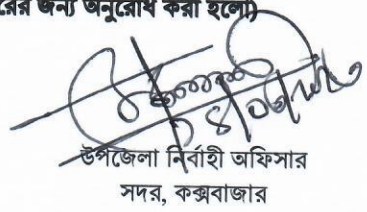 রের জন্য অনুরোধ করা হলো)
উপজেলা নির্বাহী অফিসার
সদর, কক্সবাজার